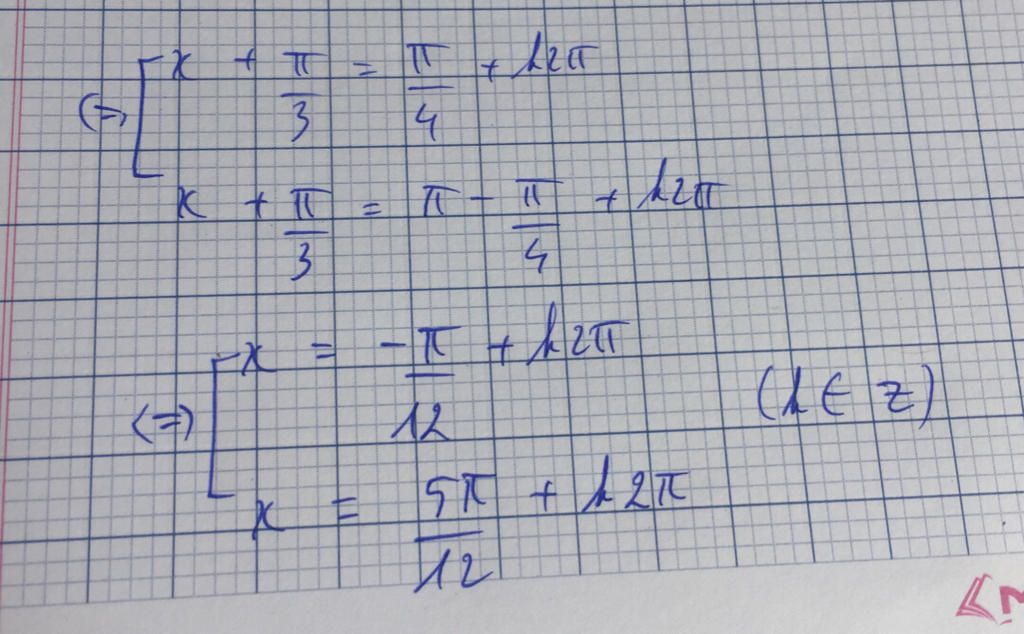 (=) [ x + π/3 = π/4 + k2π
x + π/3 = π - π/4 + k2π
(=) [ x = -π/12 + k2π
(k ∈ z)
x = 5π/12 + k2π